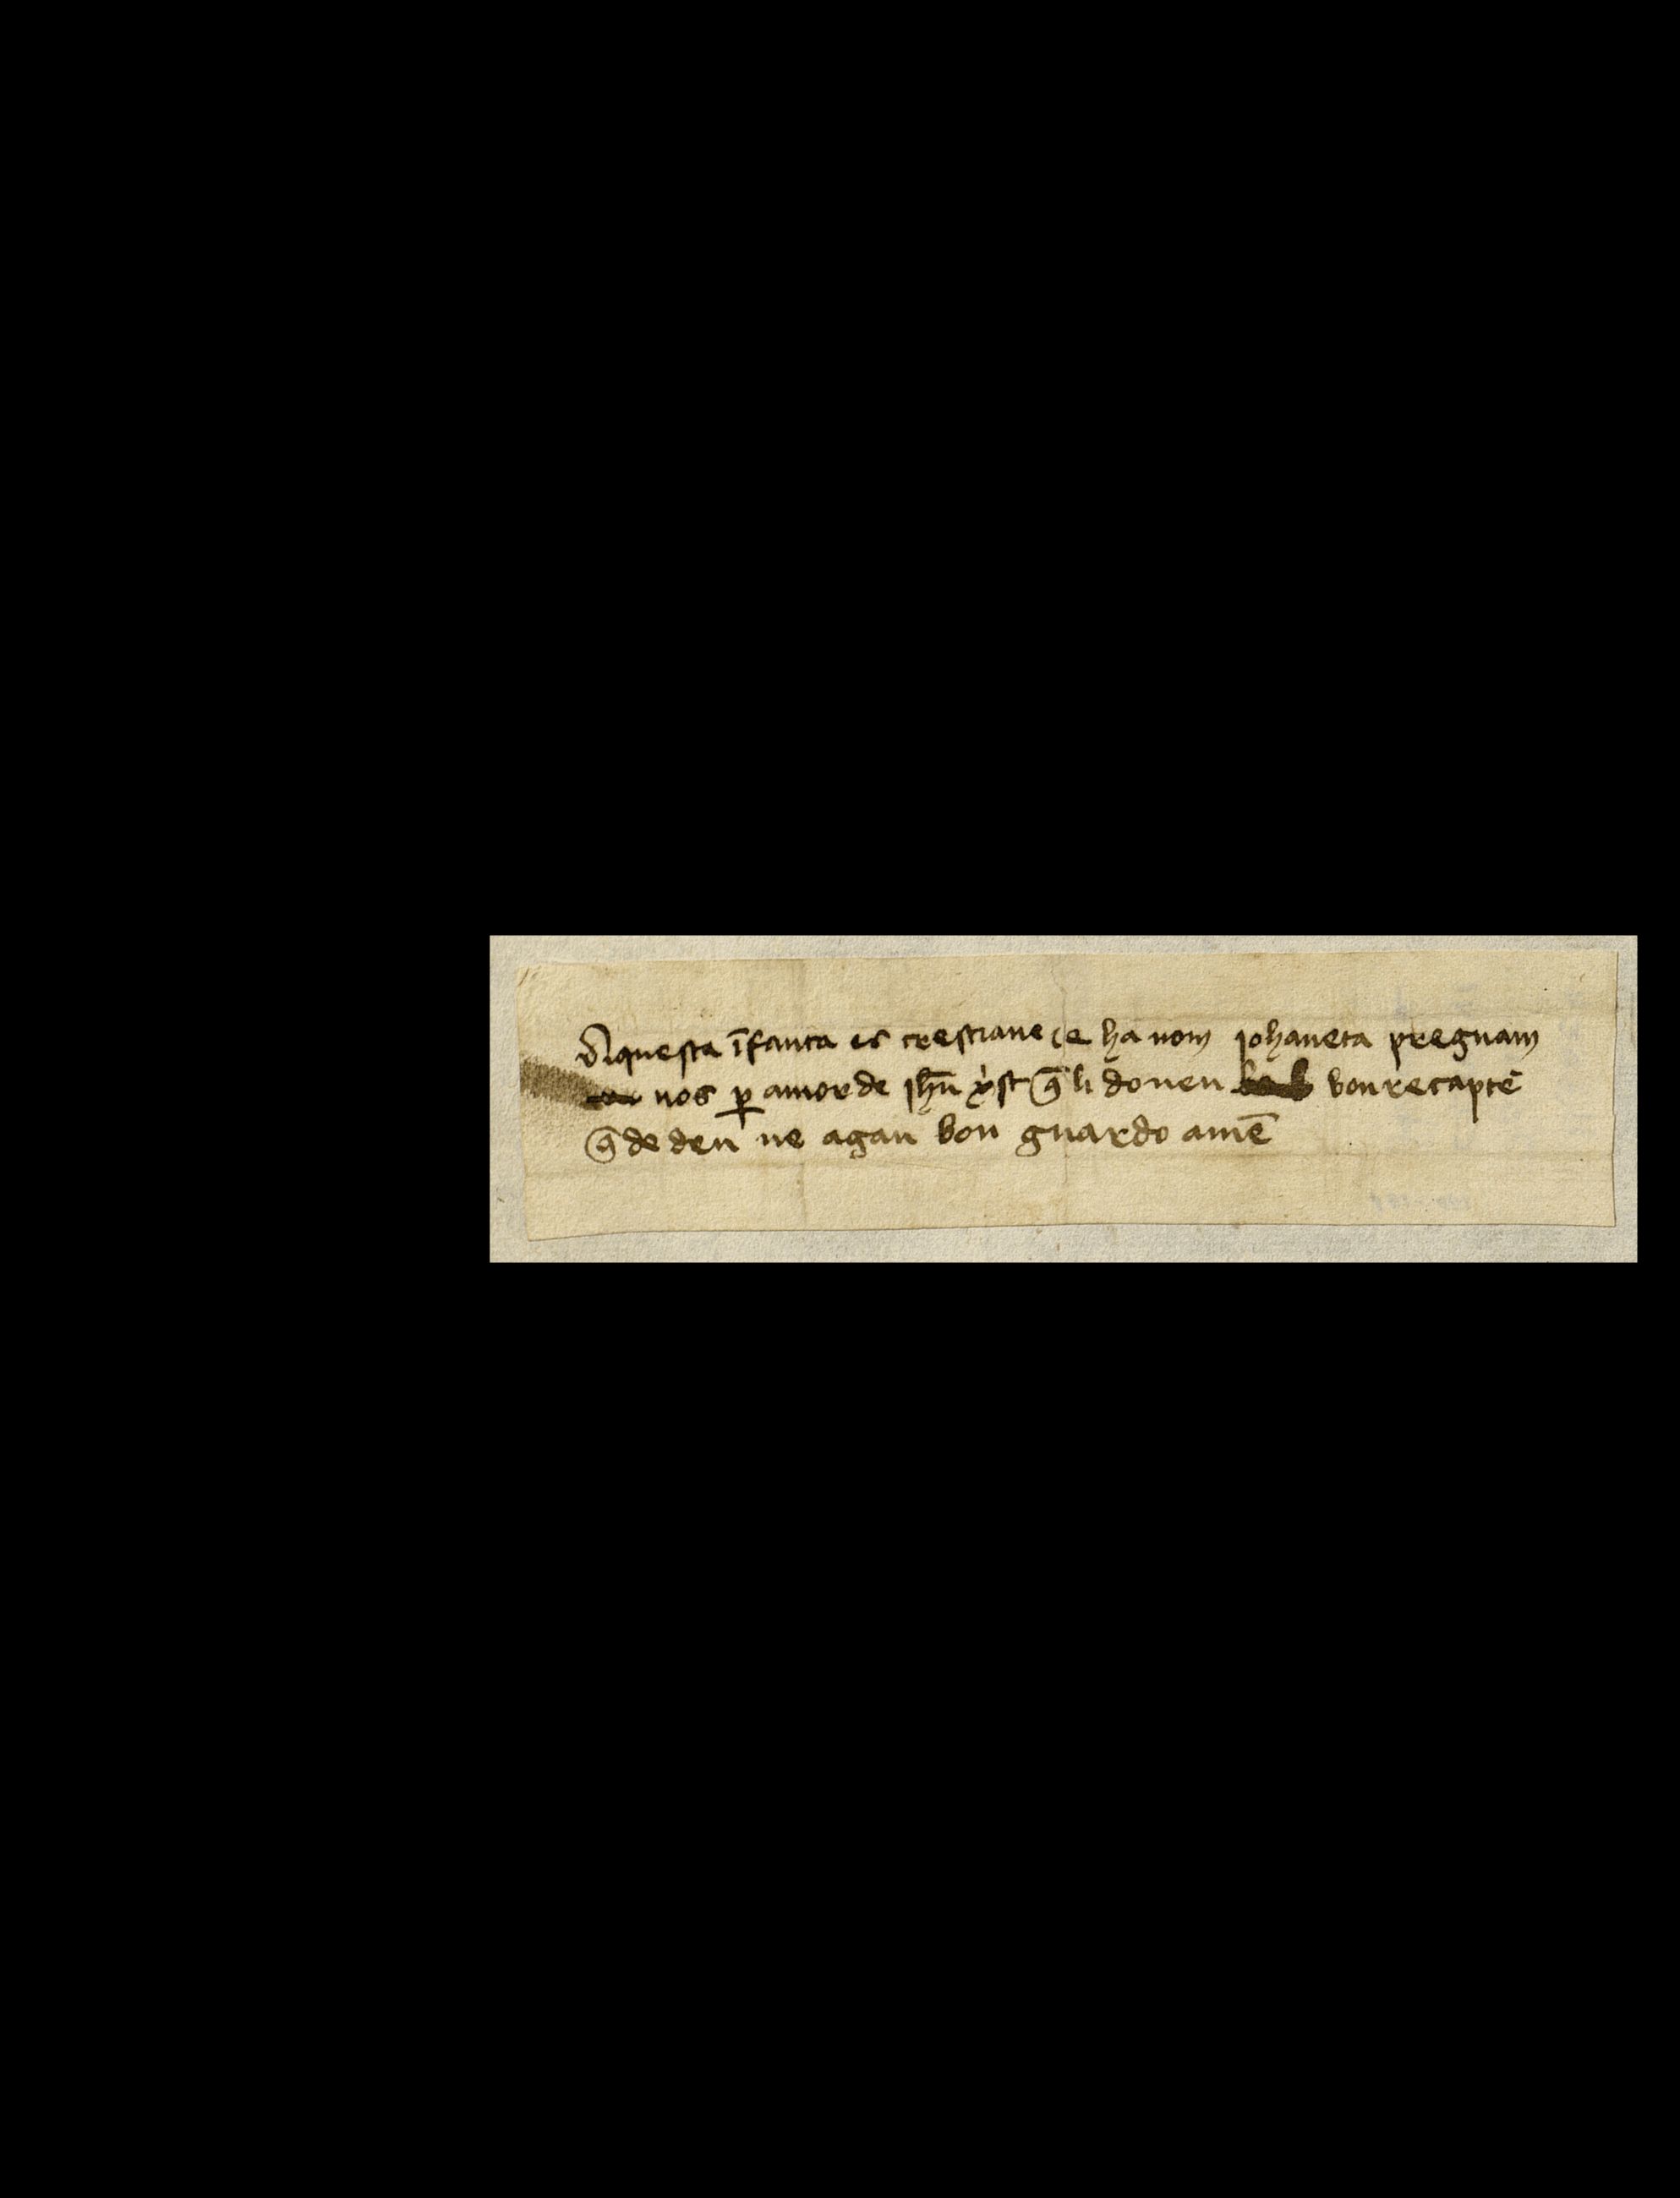 Aquesta īfanta es crestiane e ha nom johaneta pregnam
nos ꝑ amor de jhū xp̄st q̄ li donen bon recapte
q̄ de deu ne agan bon guardo amē